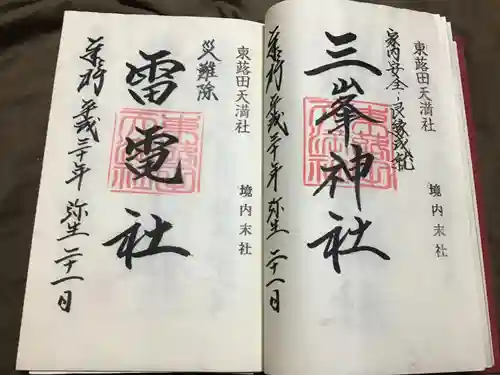 東蕗田天満社
境内末社
家内安全・良縁成就
三峯神社
奉拝 平成三十年 弥生二十一日
東蕗田天満社
境内末社
災難除
雷電社
奉拝 平成三十年 弥生二十一日